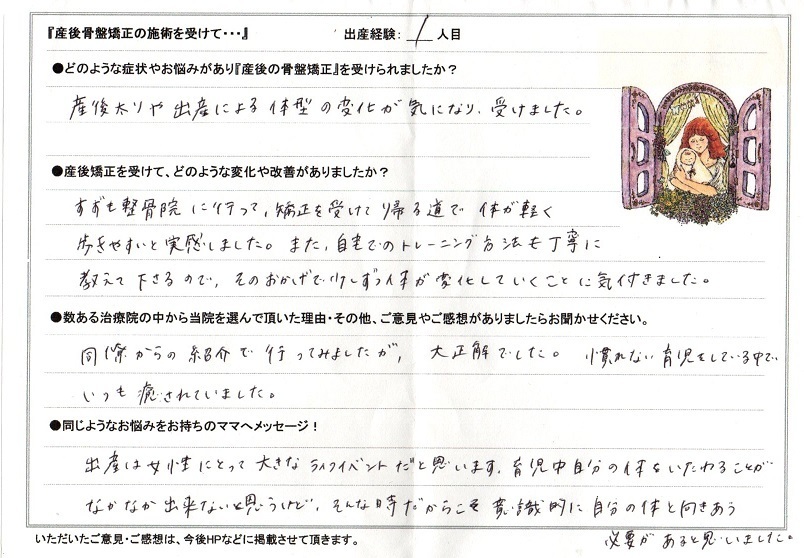 『産後骨盤矯正の施術を受けて・・・』 出産経験: 1 人目
●どのような症状やお悩みがあり『産後の骨盤矯正』を受けられましたか？
産後太りや出産による体型の変化が気になり、受けました。
●産後矯正を受けて、どのような変化や改善がありましたか？
すずも整骨院に行って、矯正を受けて帰る道で体が軽く
歩きやすいと実感しました。また、自宅でのトレーニング方法も丁寧に
教えて下さるので、そのおかげで少しずつ体が変化していくことに気付きました。
●数ある治療院の中から当院を選んで頂いた理由・その他、ご意見やご感想がありましたらお聞かせください。
同僚からの紹介で行ってみましたが、大正解でした。慣れない育児をしている中で
いつも癒されていました。
●同じようなお悩みをお持ちのママへメッセージ！
出産は女性にとって大きなライフイベントだと思います。育児中自分の体をいたわることが
なかなか出来ないと思うけど、そんな時だからこそ意識的に自分の体と向きあう
必要があると思いました。
いただいたご意見・ご感想は、今後HPなどに掲載させて頂きます。